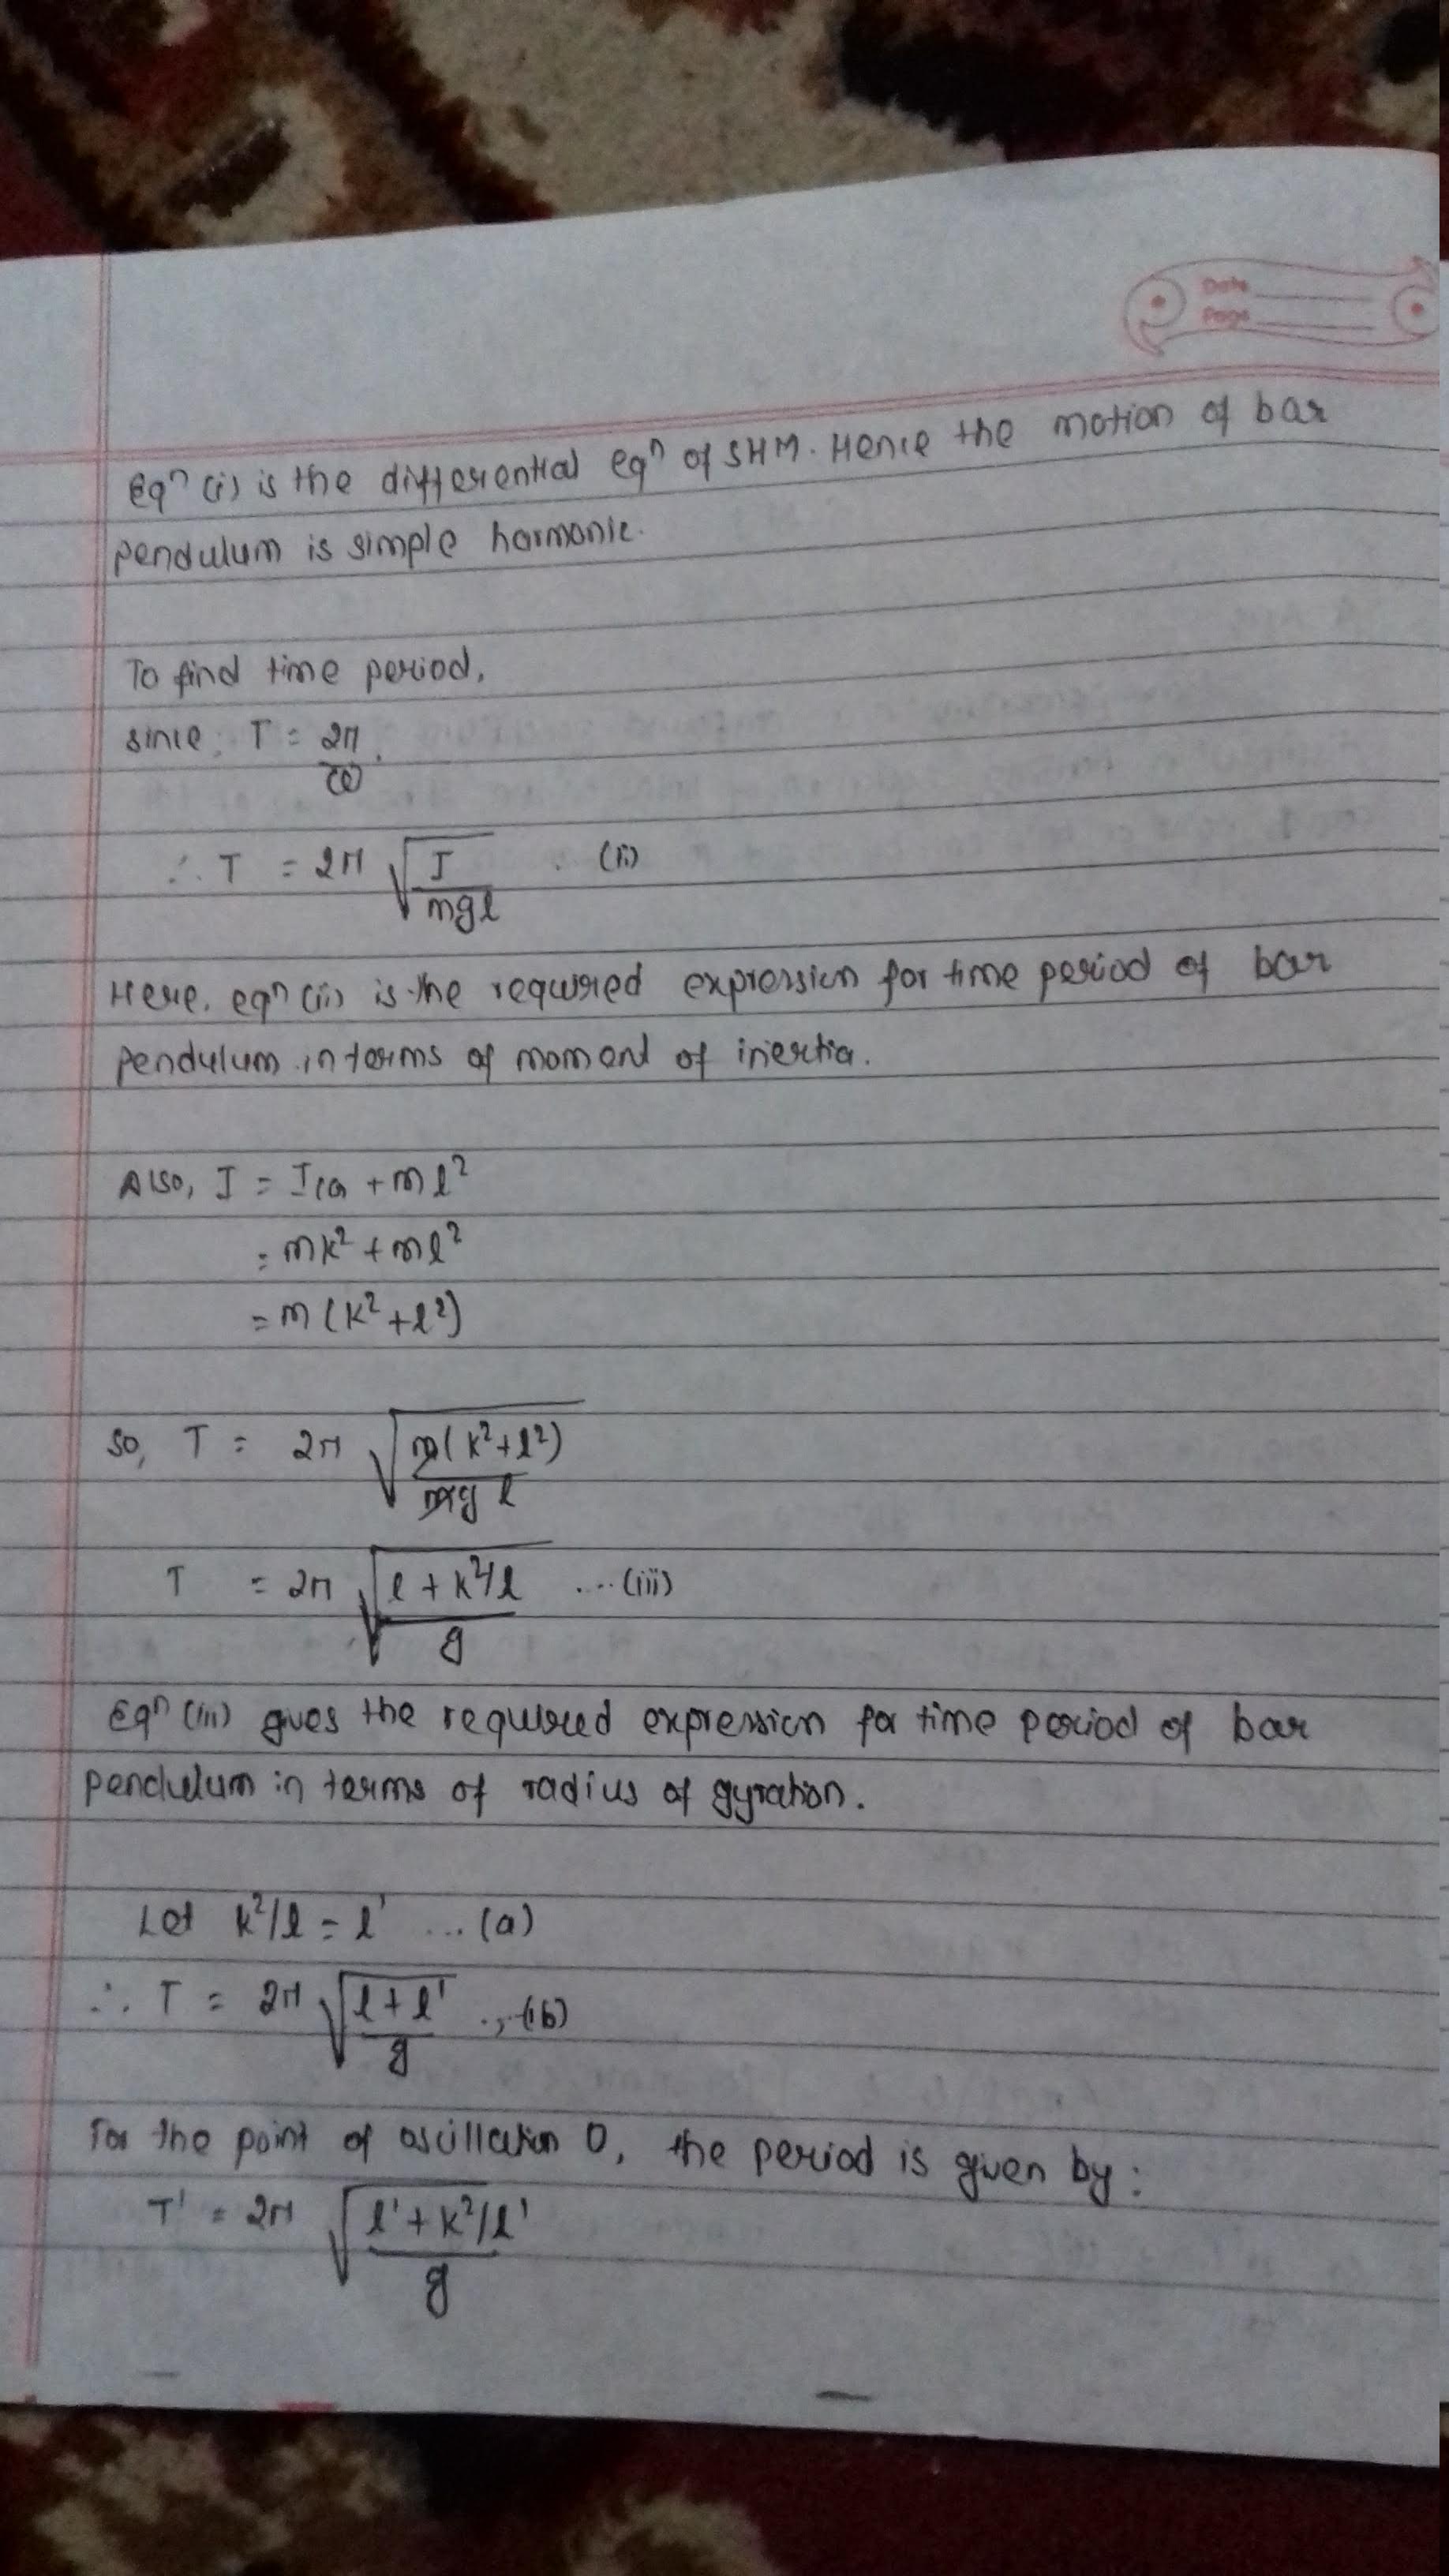 Date
Page
Eqⁿ (i) is the differential eqⁿ of SHM. Hence the motion of bar
pendulum is simple harmonic.
To find time period,
since, T = 2π/ω
∴ T = 2π √(I/mgl) . (ii)
Here, eqⁿ (ii) is the required expression for time period of bar
pendulum in terms of moment of inertia.
Also, I = ICG + ml²
= mk² + ml²
= m(k²+l²)
So, T = 2π √(m(k²+l²)/mgl)
T = 2π √((l + k²/l)/g) ....(iii)
Eqⁿ (iii) gives the required expression for time period of bar
pendulum in terms of radius of gyration.
Let k²/l = l' ...(a)
∴ T = 2π √((l+l')/g) ...(b)
For the point of oscillation O, the period is given by:
T' = 2π √((l'+k²/l')/g)